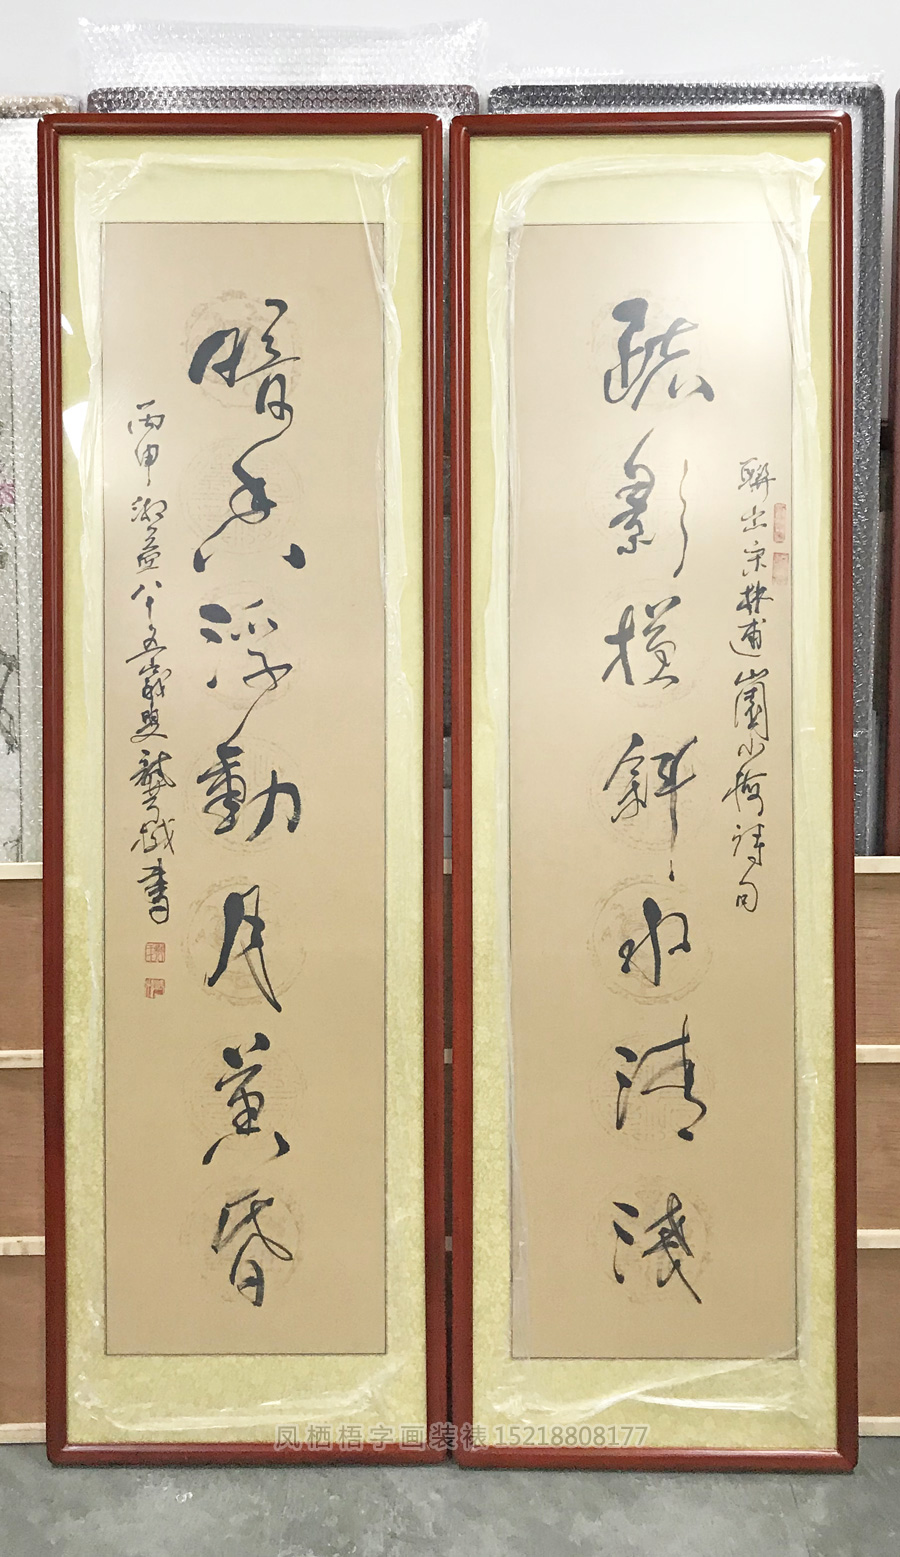 疏影橫斜水清淺
聯出宋林逋山園小梅詩句
暗香浮動月黃昏
丙申湖益八十五歲叟龔書
凤栖梧字画装裱 15218808177